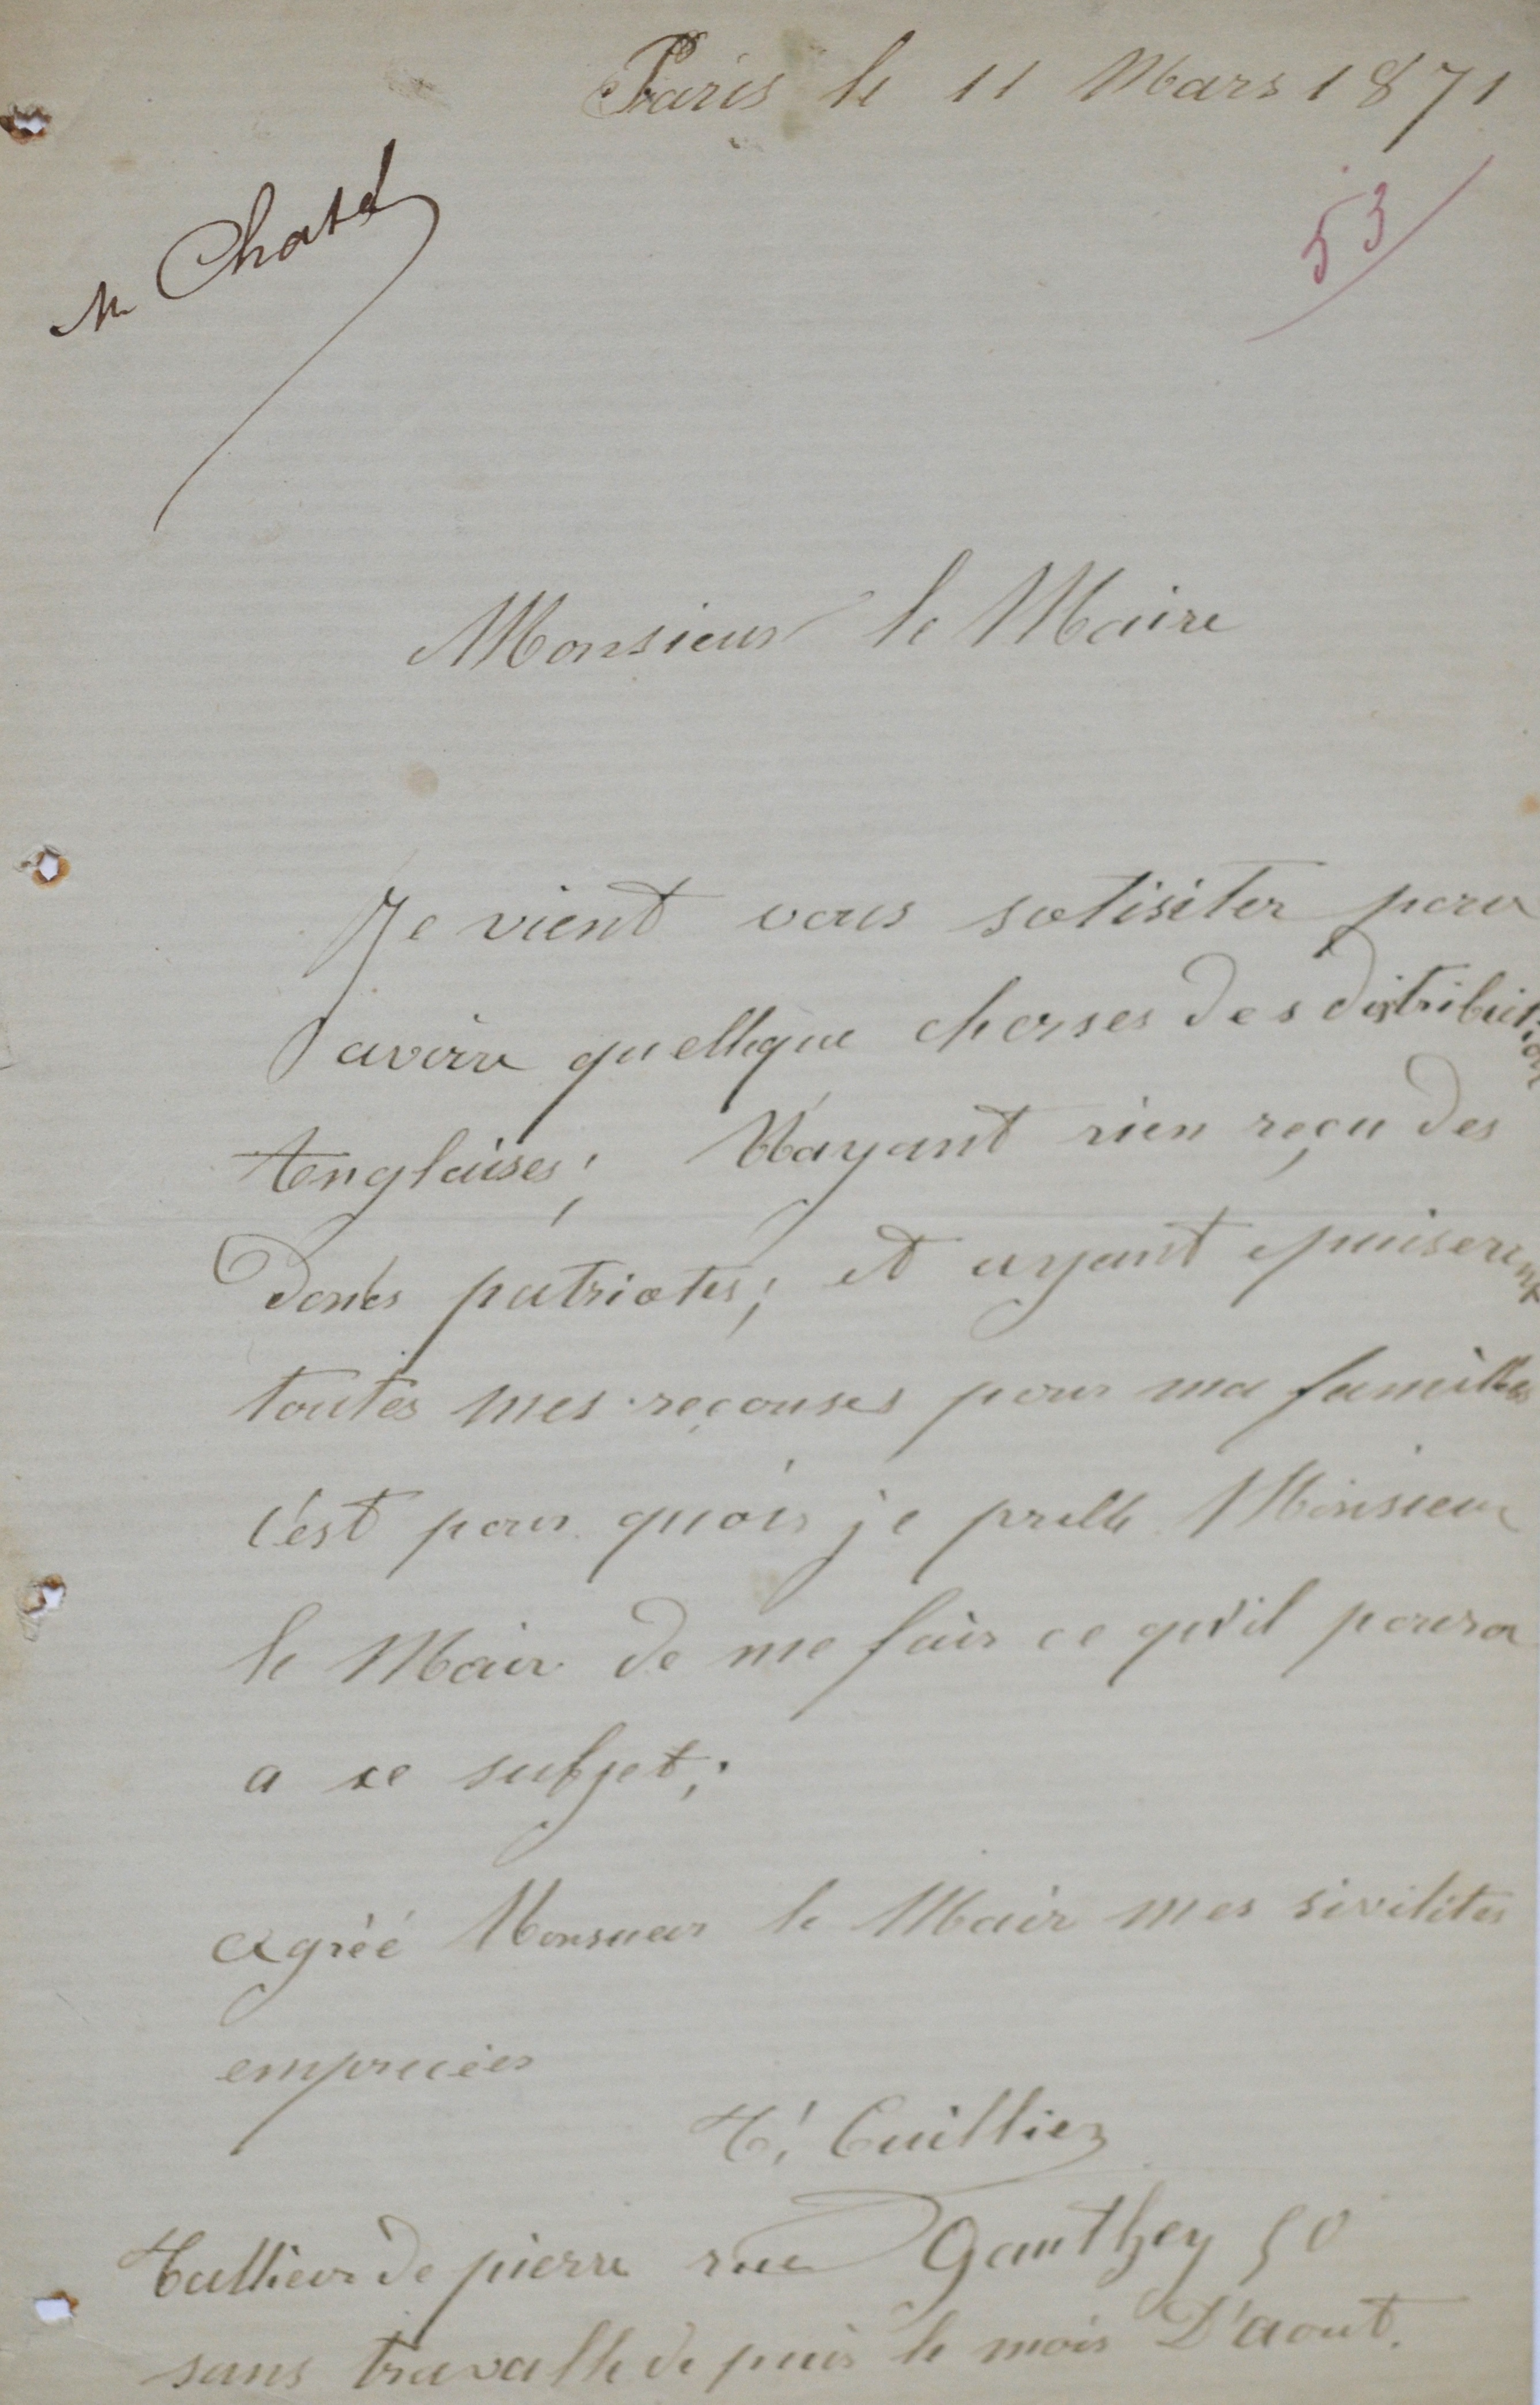 Paris le 11 Mars 1871
M Chatel
53
Monsieur le Maire
Je vient vous sotisiter pour
avoire quellque chorses des distribution
Anglaises; N'ayant rien reçu des
donés patriotes; et ayant epuiserent
toutes mes reçourses pour ma familles
c'est pour quois je prelle Monsieur
le Mair de me fair ce qu'il poura
a se subjet;
agréé Monsieur le Mair mes sivilites
empruiées
T! Cuillier
Tallieur de pierre rue Gauthey 50
sans travalle de puis le mois D'aout.